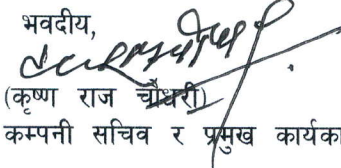 भवदीय,
(कृष्ण राज चौधरी)
कम्पनी सचिव र प्रमुख कार्यका